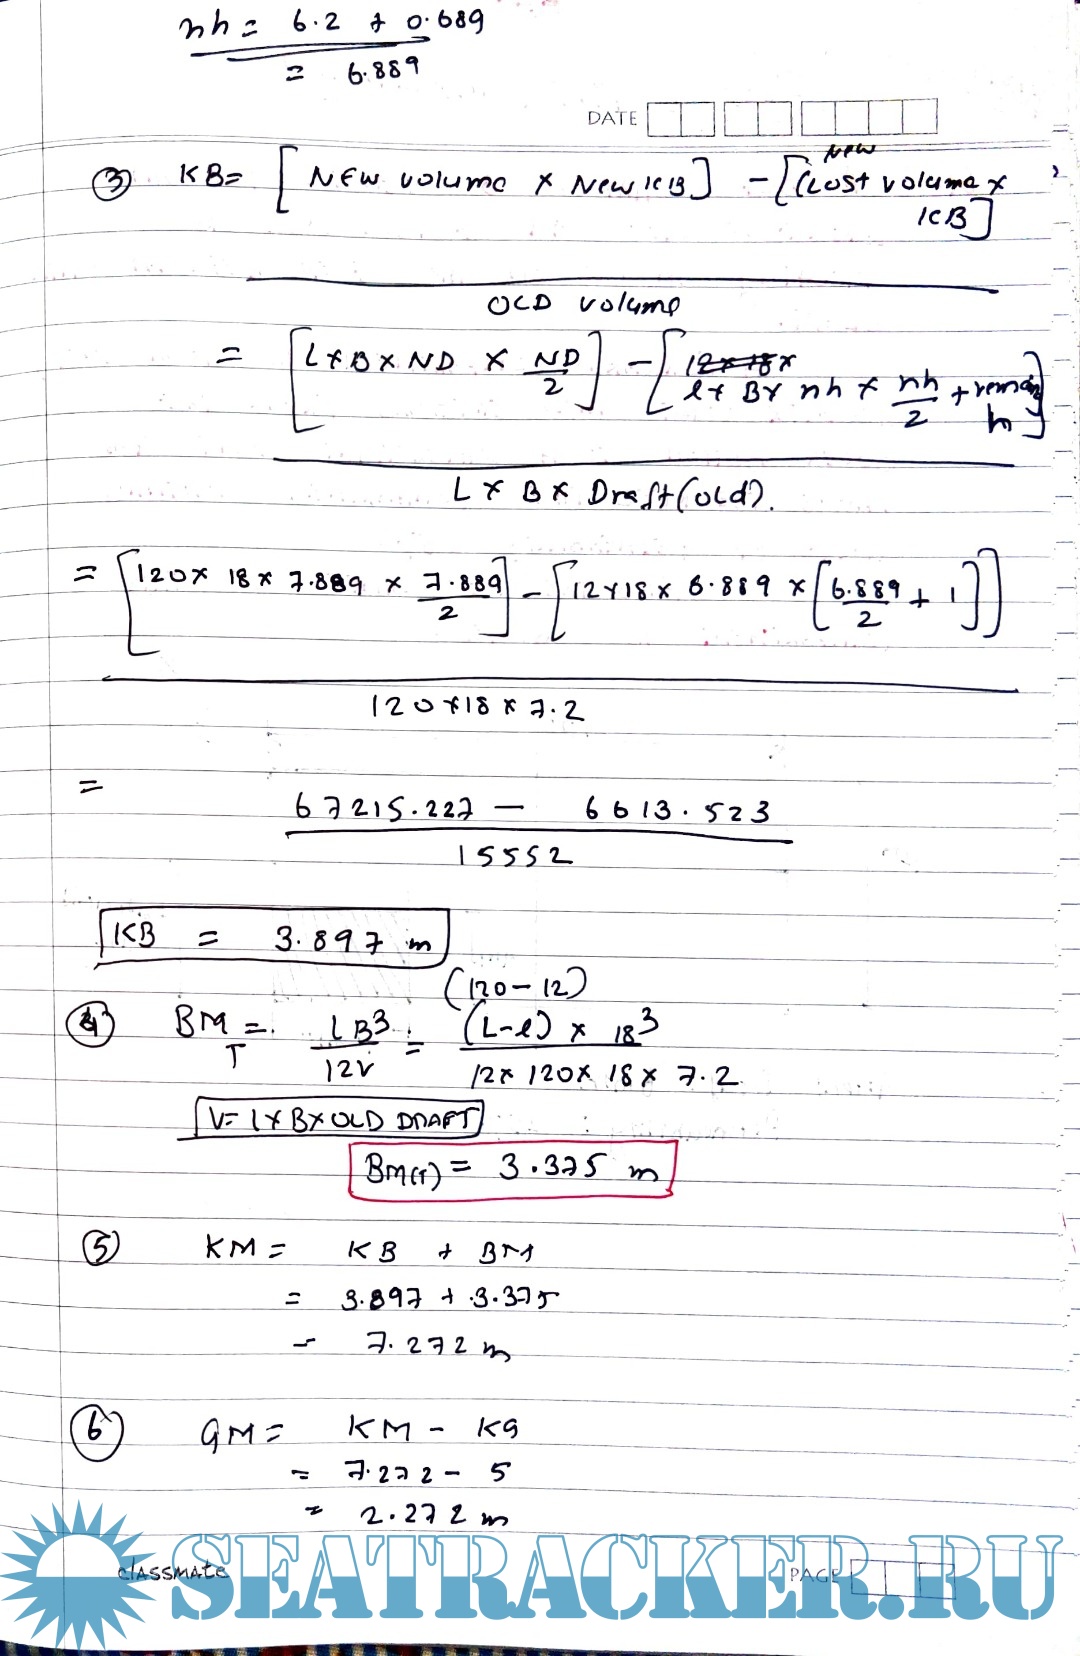 nh = 6.2 + 0.689
= 6.889
DATE
③ KB = [NEW volume × New KB] - [(Lost volume × New KB]
OLD volume
= [L × B × ND × ND/2] - [12 × 18 × l × B × nh × nh/2 + remain h]
L × B × Draft (old).
= [120 × 18 × 7.889 × 7.889/2] - [12 × 18 × 6.889 × [6.889/2 + 1]]
120 × 18 × 7.2
=
67215.227 - 6613.523
15552
KB = 3.897 m
(120 - 12)
④ BM T = LB³/12V = (L-l) × 18³
12 × 120 × 18 × 7.2
V = L × B × OLD DRAFT
BM(T) = 3.375 m
⑤ KM = KB + BM
= 3.897 + 3.375
- 7.272 m
⑥ GM = KM - KG
= 7.272 - 5
= 2.272 m
classmate
PAGE
SEATRACKER.RU